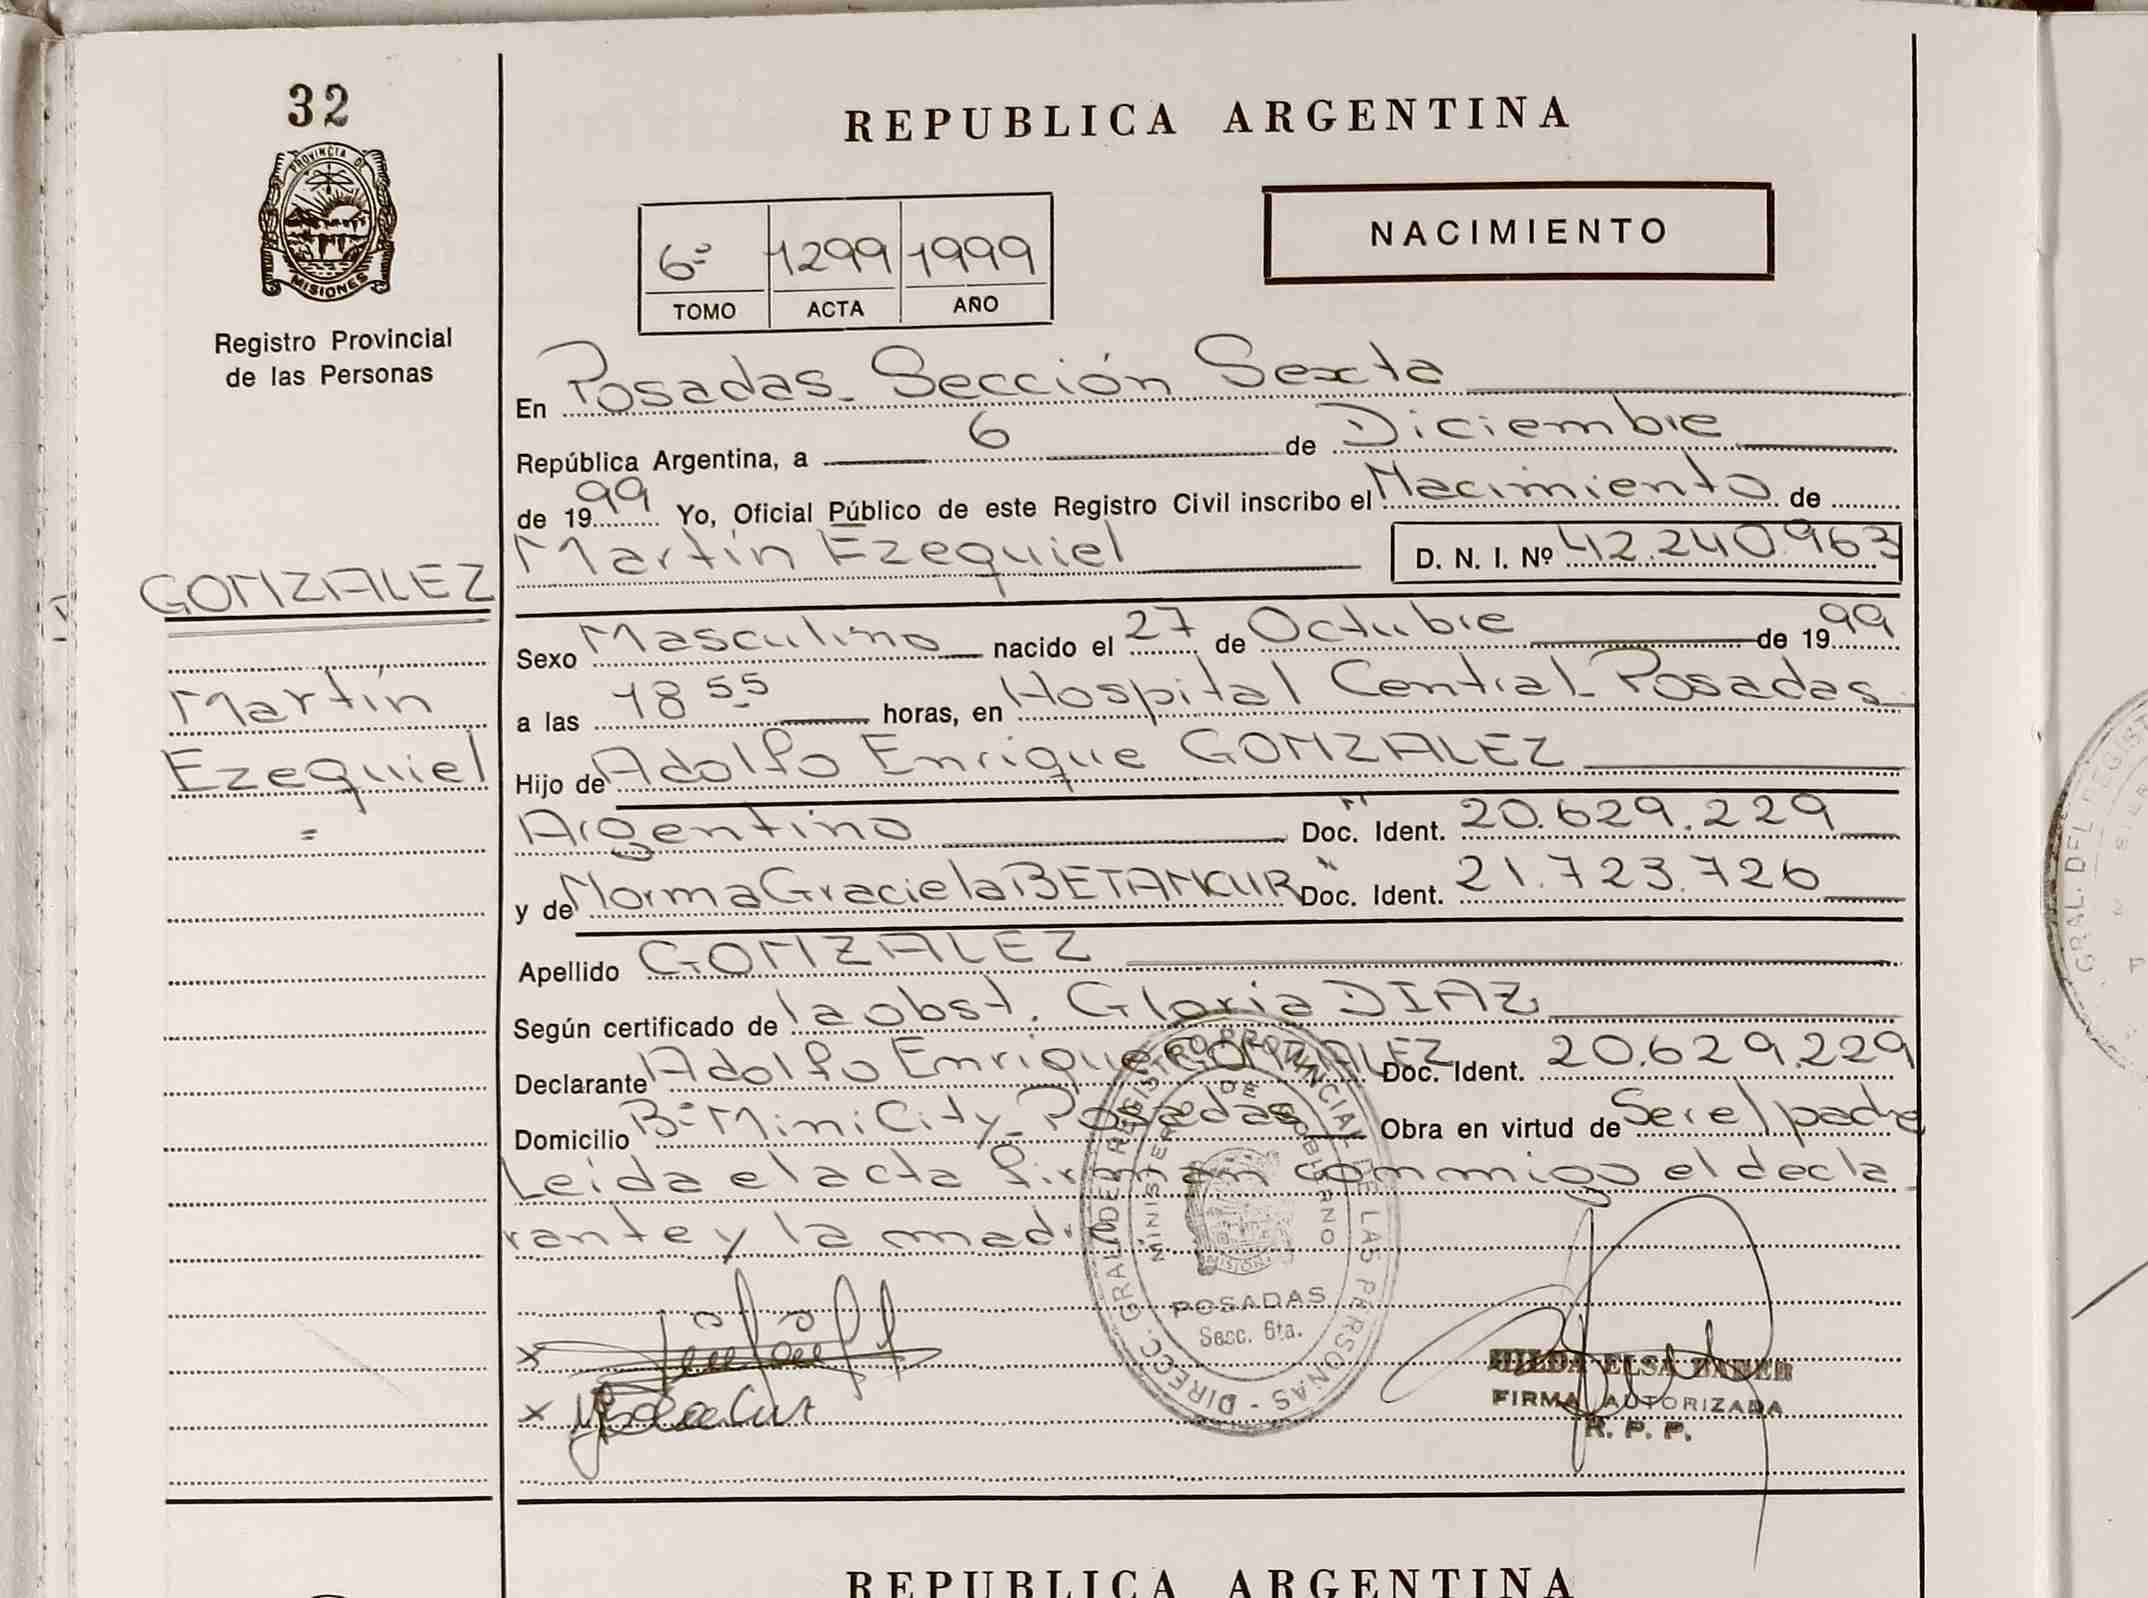 32
PROVINCIA DE
MISIONES
Registro Provincial
de las Personas
GONZALEZ
Martín
Ezequiel
=
REPUBLICA ARGENTINA
6º 1299 1999
TOMO ACTA AÑO
NACIMIENTO
En Posadas - Sección Sexta
República Argentina, a 6 de Diciembre
de 1999 Yo, Oficial Público de este Registro Civil inscribo el Nacimiento de
Martín Ezequiel D. N. I. Nº 42.240.963
Sexo Masculino nacido el 27 de Octubre de 1999
a las 18 55 horas, en Hospital Central - Posadas
Hijo de Adolfo Enrique GONZALEZ
Argentino Doc. Ident. 20.629.229
y de Norma Graciela BETANCUR Doc. Ident. 21.723.726
Apellido GONZALEZ
Según certificado de la obst. Gloria DIAZ
Declarante Adolfo Enrique GONZALEZ Doc. Ident. 20.629.229
Domicilio Bº Mini City - Posadas Obra en virtud de Ser el padre
Leída el acta firman conmigo el decla
rante y la madre
DIRECC. GRAL. DEL REGISTRO PROVINCIAL DE LAS PERSONAS -
MINISTERIO DE GOBIERNO
MISIONES
POSADAS
Secc. 6ta.
x
x
HILDA ELSA
FIRMA AUTORIZADA
R. P. P.
REPUBLICA ARGENTINA
GRAL. DEL REGIST